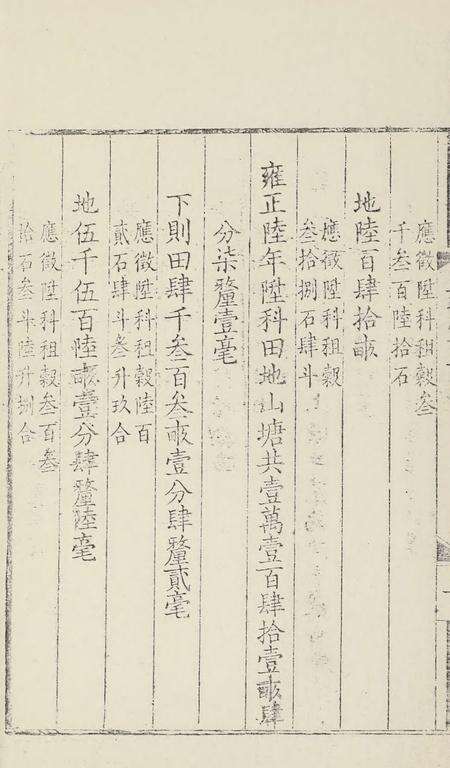 應徵陞科租穀叁
千叁百陸拾石
地陸百肆拾畝
應徵陞科租穀
叁拾捌石肆斗
雍正陸年陞科田地山塘共壹萬壹百肆拾壹畝肆
分柒釐壹毫
下則田肆千叁百叁畝壹分肆釐貳毫
應徵陞科租穀陸百
貳石肆斗叁升玖合
地伍千伍百陸畝壹分肆釐陸毫
應徵陞科租穀叁百叁
拾石叁斗陸升捌合